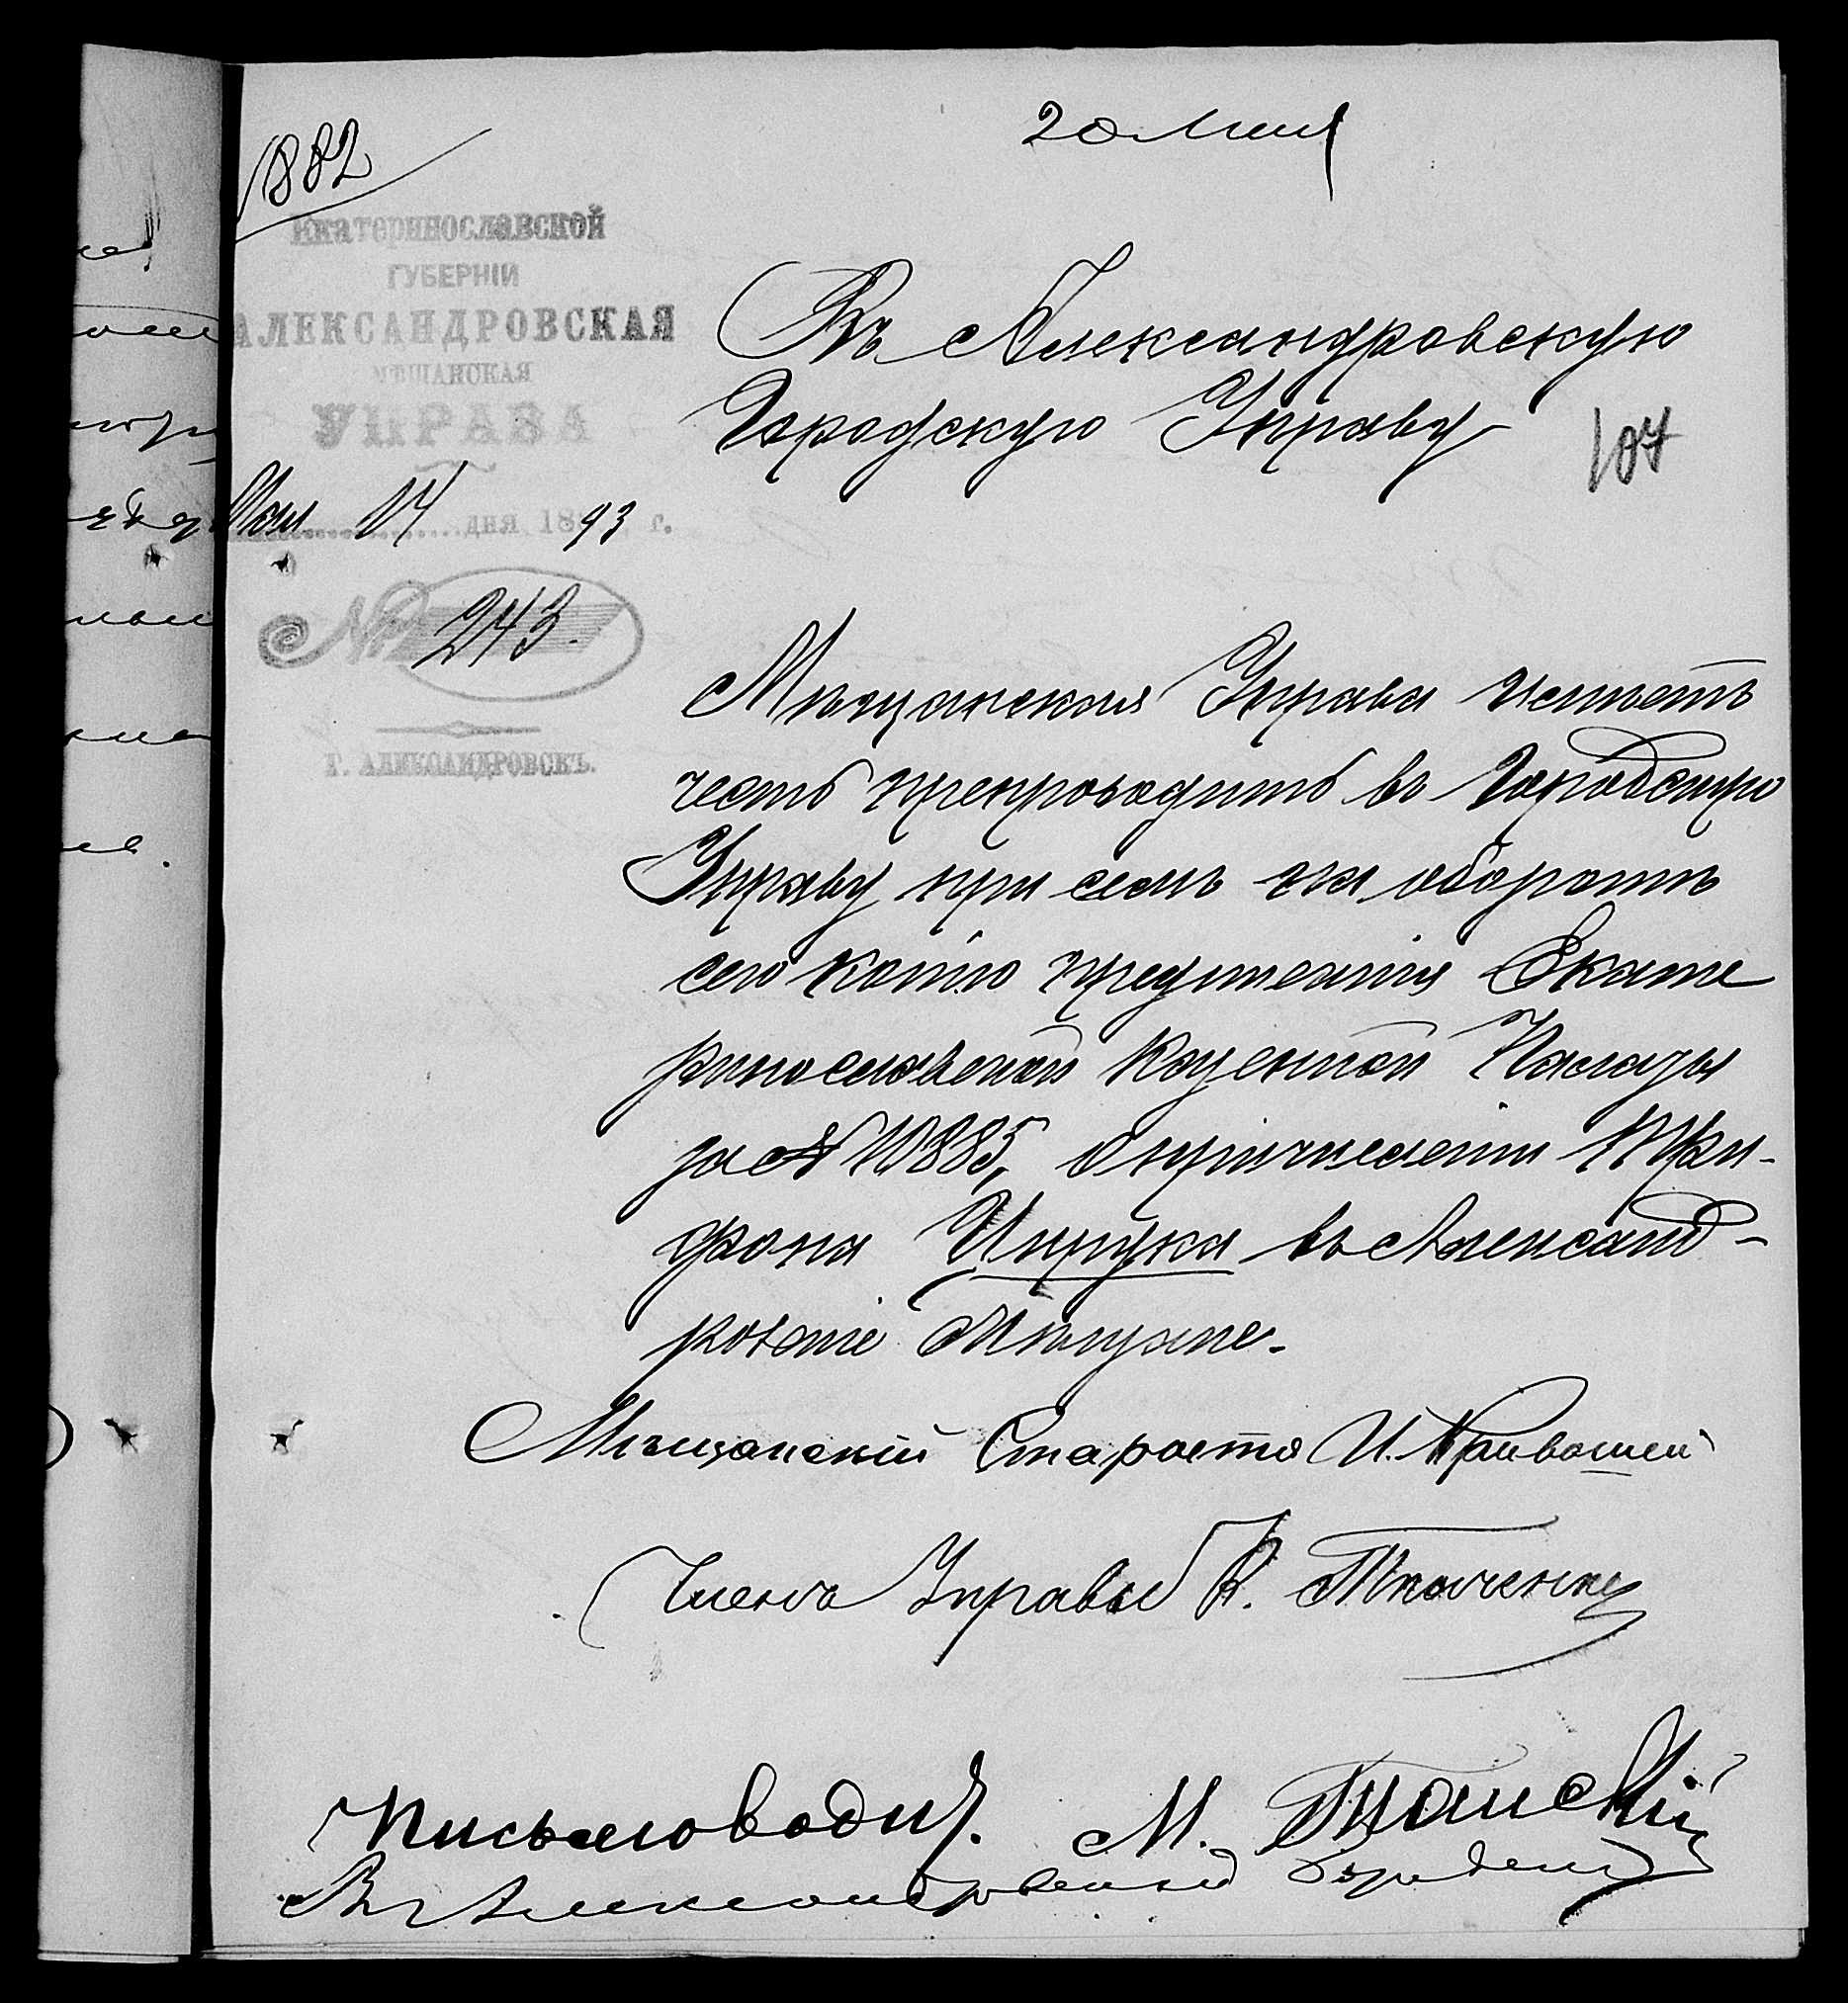 1882
20 Мая
Екатеринославской
ГУБЕРНІИ
АЛЕКСАНДРОВСКАЯ
МѢЩАНСКАЯ
УПРАВА
Мая 14 дня 1893 г.
№ 243.
Г. АЛЕКСАНДРОВСКЪ.
Въ Александровскую
Городскую Управу
107
Мѣщанская Управа имѣетъ
честь препроводить въ Городскую
Управу при семъ на оборотѣ
сего копію предписанія Екате
ринославской Казенной Палаты
за № 10885, о причисленіи Три-
фона Цирука въ Александ-
ровскіе Мѣщане.
Мѣщанскій Староста И. Кривошеи
Членъ Управы К. Ткаченко
Письмоводит. М.
Въ Александровскую